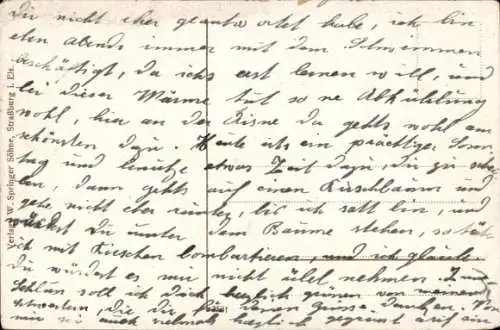 dir nicht eher geantwortet habe, ich bin
eben abends immer mit dem Schwimmen
beschäftigt, da ichs erst lernen will, und
bei dieser Wärme tut so ne Abkühlung
wohl, hier an der Aisne da gehts wohl am
schönsten dazu. Heute ists ein prachtiger Sonn
tag und benutze etwas Zeit dazu, dir zu schrei
ben, dann gehts auf einen Kirschbaum und
gehe nicht eher runter, bis ich satt bin, und
würdest Du unter dem Baume stehen, so tät
ich mit Kirschen bombartieren, und ich glaube
du würdest es mir nicht übel nehmen. Zum
Schluss soll ich dich herzlich grüssen von meinem
die dir für deinen Gruss danken.
mir sei auch vielmals herzlich gegrüsst auf ein
Verlag W. Springer Söhne, Straßburg i. Els.